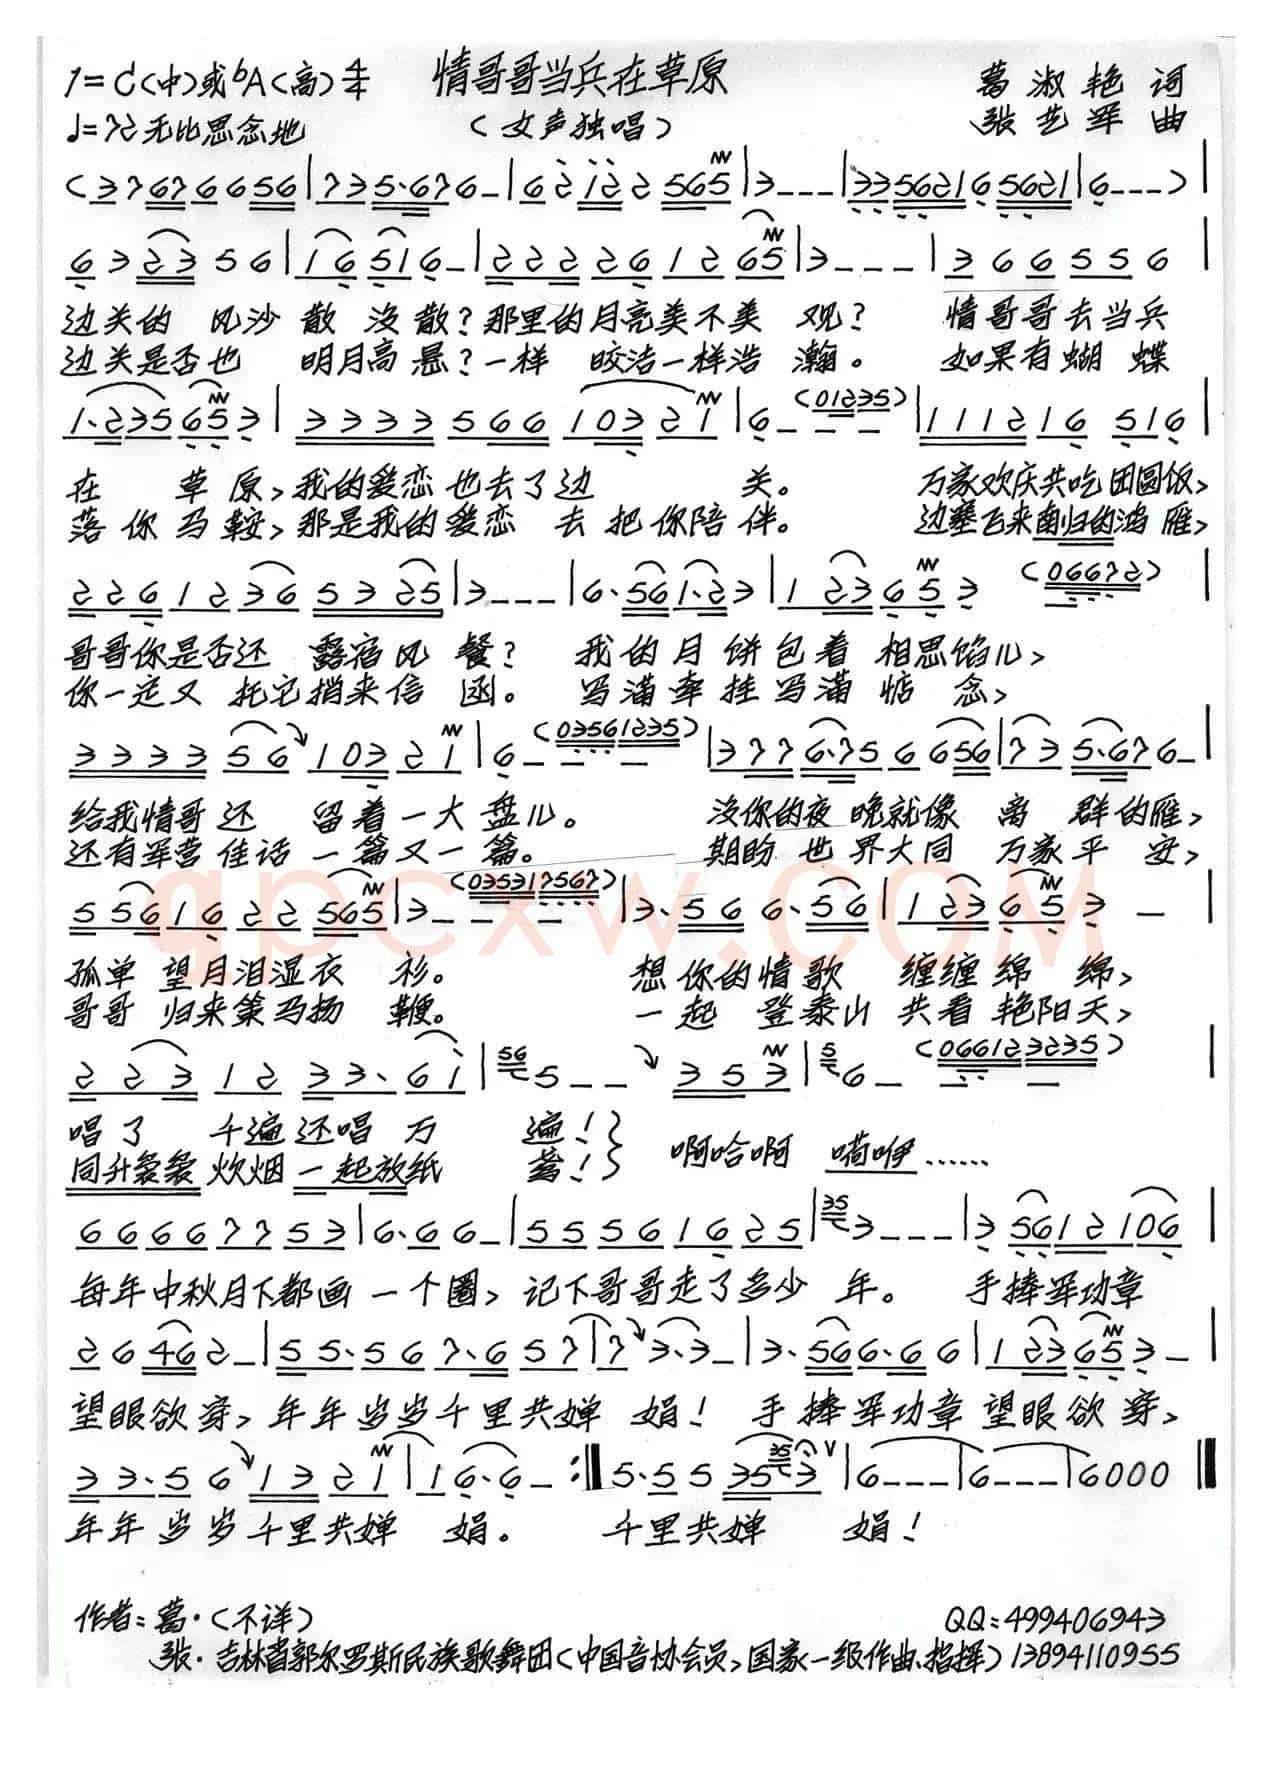 1=C(中)或bA(高)4/4 情哥哥当兵在草原 葛淑艳 词
♩=72 无比思念地 (女声独唱) 张艺军 曲
(3 7 6 7 6 6 5 6 | 7 3 5·6 7 6 – | 6 2 1 2 2 5 6 5 | 3 – – – | 3 3 5 6 2 1 6 5 6 2 1 | 6 – – – ) |
6 3 2 3 5 6 | 1 6 5 1 6 – | 2 2 2 2 6 1 2 6 5 | 3 – – – | 3 6 6 5 5 6 |
边关的 风沙 散 没散?那里的月亮美不美 观? 情哥哥去当兵
边关是否也 明月高悬?一样 皎洁一样浩 瀚。 如果有蝴 蝶
1·2 3 5 6 5 3 | 3 3 3 3 5 6 6 1 0 3 2 1 | 6 – – – (0 1 2 3 5) | 1 1 1 2 1 6 5 1 6 |
在 草 原,我的爱恋也去了边 关。 万家欢庆共吃团圆饭,
落你马鞍,那是我的爱恋 去把你陪伴。 边塞飞来南归的鸿雁,
2 2 6 1 2 3 6 5 3 2 5 | 3 – – – | 6·5 6 1·2 3 | 1 2 3 6 5 3 (0 6 6 7 2) |
哥哥你是否还 露宿风 餐? 我的月饼包着 相思馅儿,
你一定又 托它捎来信 函。 写满牵挂写满 惦 念,
3 3 3 3 5 6 1 0 3 2 1 | 6 – – – (0 3 5 6 1 2 3 5) | 3 7 7 6·7 5 6 6 5 6 | 7 3 5·6 7 6 – |
给我情哥还 留着一大盘儿。 没你的夜晚就像 离 群的雁,
还有军营佳话 一篇又一篇。 期盼 世界大同 万家平 安,
5 5 6 1 6 2 2 5 6 5 | 3 – – – (0 3 5 3 1 7 5 6 7) | 3·5 6 6·5 6 | 1 2 3 6 5 3 – |
孤单 望月泪湿衣 衫。 想你的情歌 缠缠绵 绵,
哥哥 归来策马扬 鞭。 一起 登泰山 共看艳阳天,
2 2 3 1 2 3 3·6 1 | 56 5 – – 3 5 3 | 5 6 – – (0 6 6 1 2 3 2 3 5) |
唱了 千遍还唱万 遍!} 啊哈啊 嗬咿……
同升袅袅 炊烟 一起放纸 鸢!}
6 6 6 6 7 7 5 3 | 6·6 6 – | 5 5 5 6 1 6 2 5 | 35 3 – – – | 3 5 6 1 2 1 0 6 |
每年中秋月下都画 一个圈,记下哥哥走了多少 年。 手捧军功章
2 6 4 6 2 – | 5 5·5 6 7·6 5 7 | 7 3·3 – | 3·5 6 6·6 6 | 1 2 3 6 5 3 – |
望眼欲穿,年年岁岁千里共婵 娟! 手捧军功章望眼欲穿,
3 3·5 6 1 3 2 1 | 1 6·6 – :‖ 5·5 5 3 5 35 3 V | 6 – – – | 6 – – – | 6 0 0 0 ‖
年年岁岁千里共婵 娟。 千里共婵 娟!
作者:葛·(不详) QQ:499406943
张·吉林省郭尔罗斯民族歌舞团(中国音协会员,国家一级作曲、指挥)13894110955
qpcxw.com